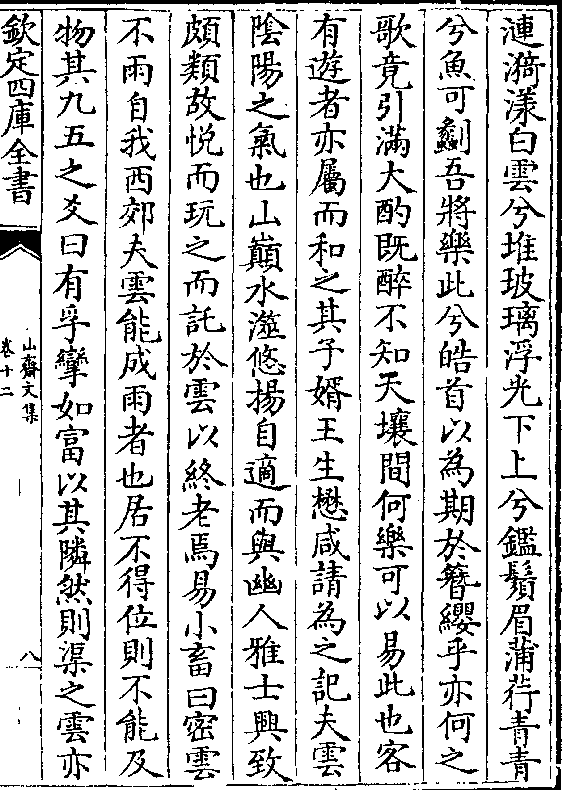 漣漪漾白雲兮堆玻璃浮光下上兮鑑鬚眉蒲荇青青
兮魚可劙吾將樂此兮皓首以為期於簪纓乎亦何之
歌竟引滿大酌既醉不知天壤間何樂可以易此也客
有遊者亦屬而和之其子婿王生懋咸請為之記夫雲
陰陽之氣也山巔水滋悠揚自適而與幽人雅士興致
頗類故悅而玩之而託於雲以終老焉易小畜曰密雲
不雨自我西郊夫雲能成雨者也居不得位則不能及
物其九五之爻曰有孚攣如富以其隣然則渠之雲亦
欽定四庫全書
山齋文集
卷十二
八